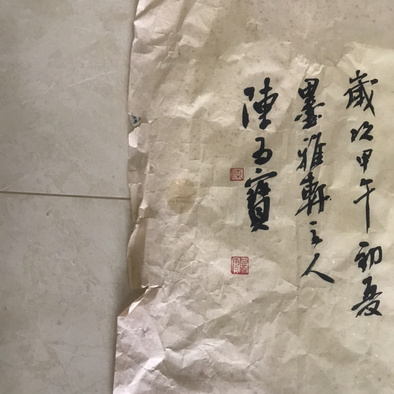 歲次甲午初夏
墨雅軒主人
陳子寶